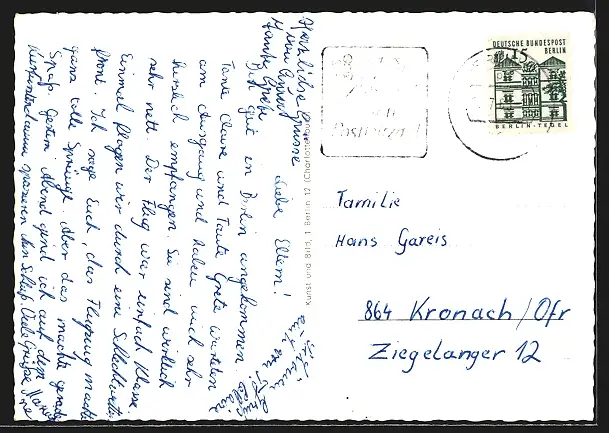 Herzliche Grüsse
Tante Grete
Liebe Eltern!
Bin gut in Berlin angekommen.
Tante Claire und Tante Grete warteten
am Ausgang und haben mich sehr
herzlich empfangen. Sie sind wirklich
sehr nett. Der Flug war einfach Klasse.
Einmal flogen wir durch eine Schlechtwetter
front. Ich sage Euch, das Flugzeug machte
ganz tolle Sprünge. Aber das machte gerade
Spaß. Gestern Abend sind ich auf dem
Kurfürstendamm spazieren Viele Grüße
Kunst und Bild, 1 Berlin 12 (Charlottenburg)
Postleitzahl
DEUTSCHE BUNDESPOST
BERLIN
15
BERLIN-TEGEL
Familie
Hans Gareis
864 Kronach/Ofr
Ziegelanger 12